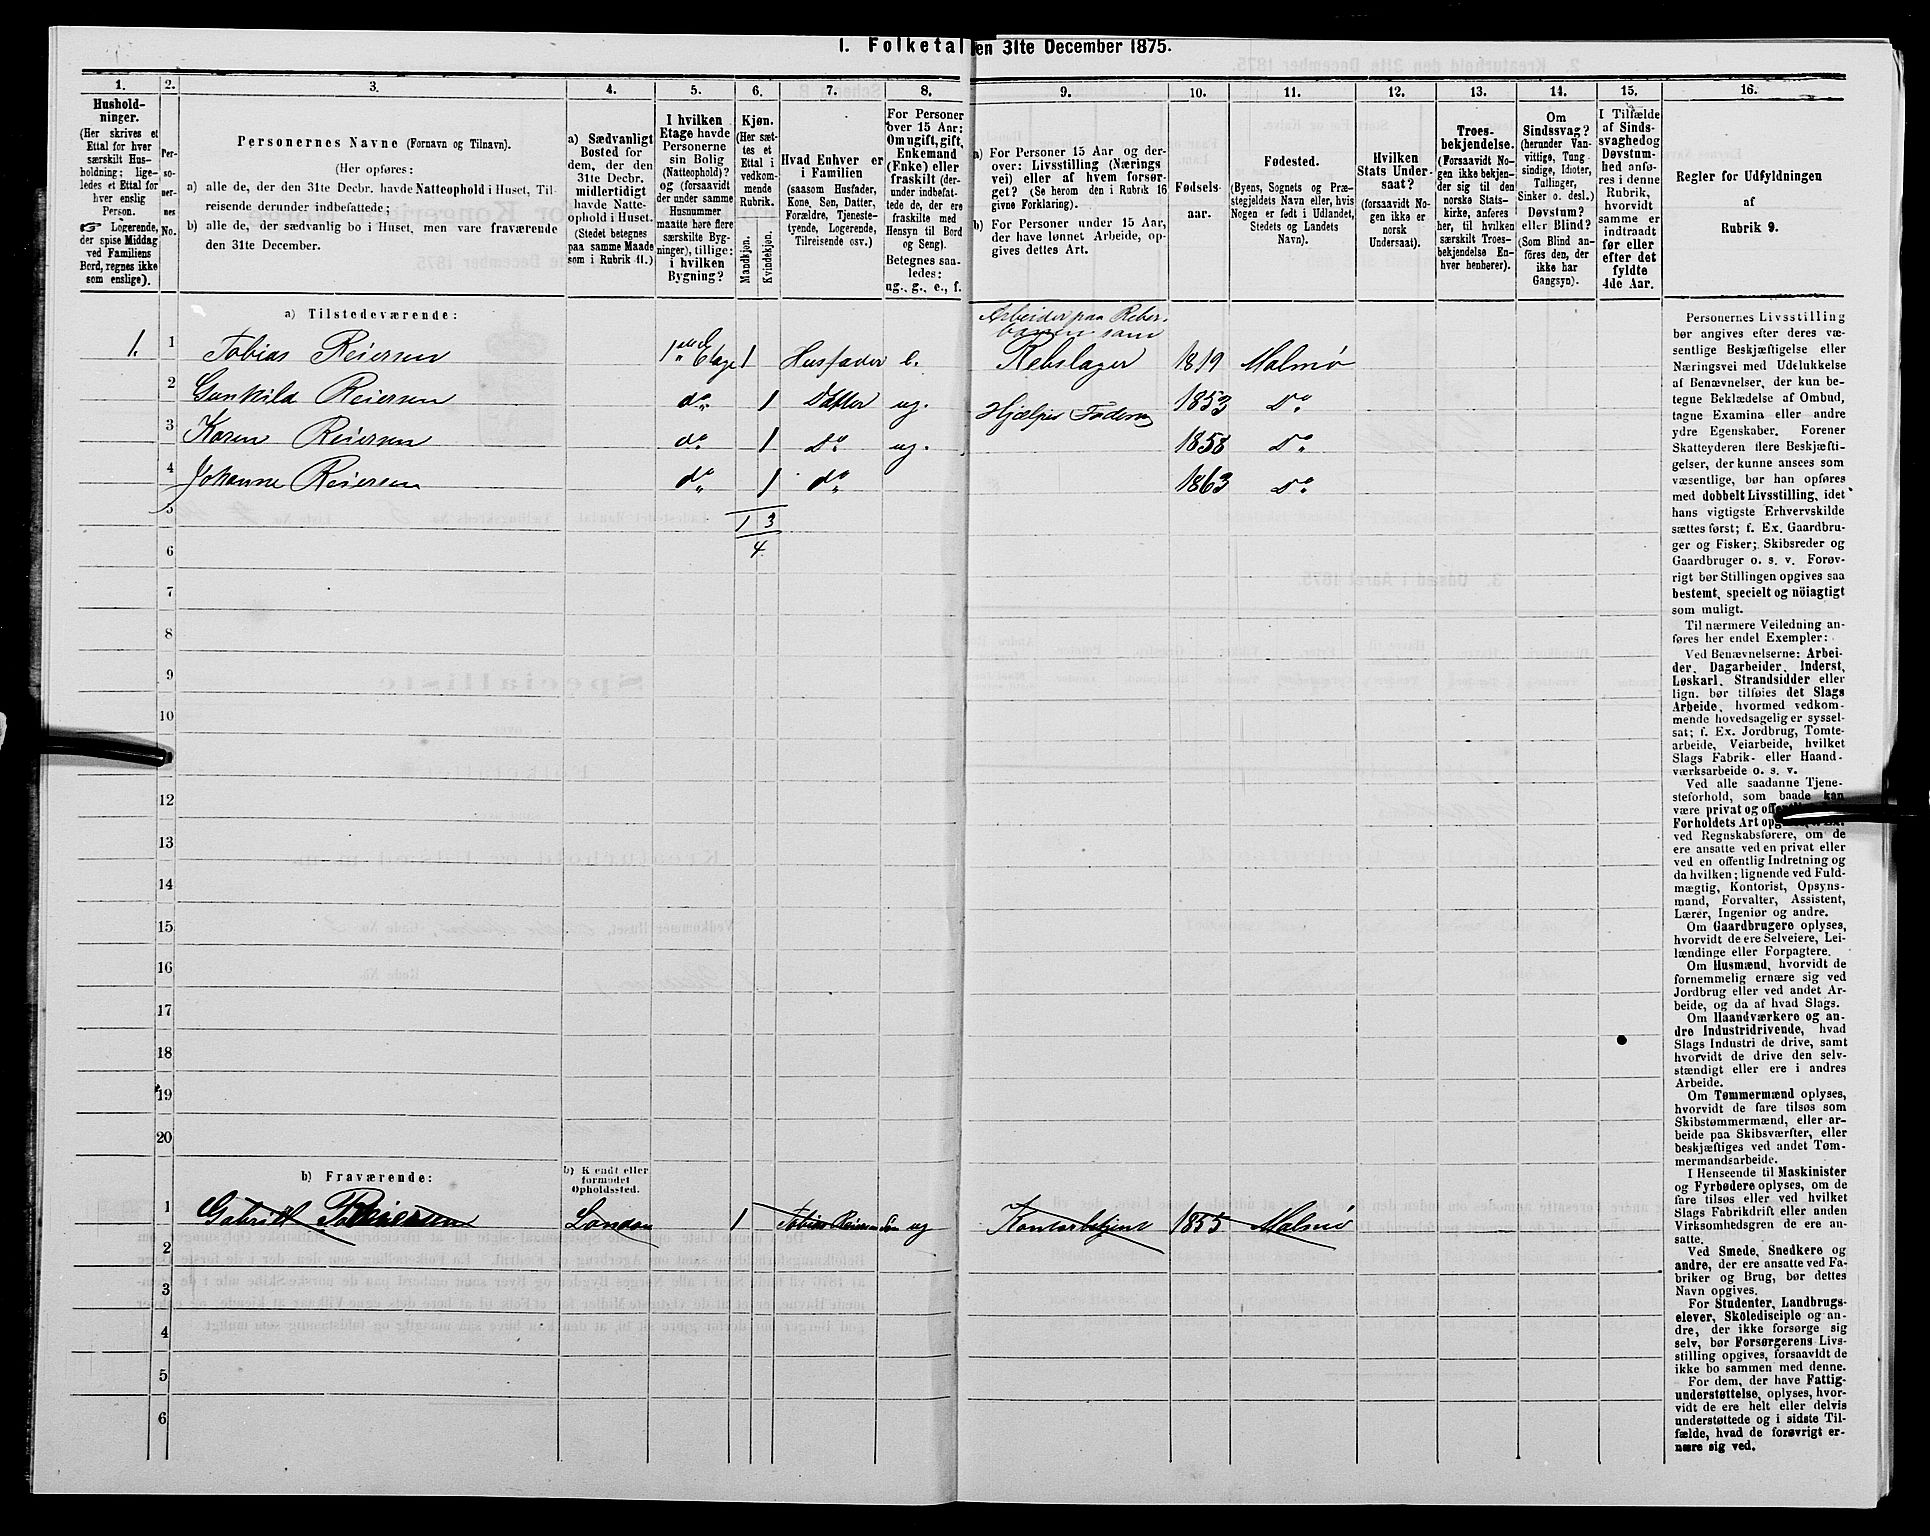 I. Folketal den 31te December 1875.
1. 2. 3. 4. 5. 6. 7. 8. 9. 10. 11. 12. 13. 14. 15. 16.
Hushold-
ninger.
(Her skrives et
Ettal for hver
særskilt Hus-
holdning; lige-
ledes et Ettal for
hver enslig
Person.
☞ Logerende,
der spise Middag
ved Familiens
Bord, regnes ikke
som enslige).
Per-
so-
ner-
nes
No.
Personernes Navne (Fornavn og Tilnavn).
(Her opføres:
a) alle de, der den 31te Decbr. havde Natteophold i Huset, Til-
reisende derunder indbefattede;
b) alle de, der sædvanlig bo i Huset, men vare fraværende
den 31te December.
a) Sædvanligt
Bosted for
dem, der den
31te Decbr.
midlertidigt
havde Natte-
ophold i Huset.
(Stedet betegnes
paa samme Maade
som i Rubrik 11.)
I hvilken
Etage havde
Personerne
sin Bolig
(Natteophold)?
og (forsaavidt
der under samme
Husnummer
maatte høre flere
særskilte Byg-
ninger), tillige:
i hvilken
Bygning?
Kjøn.
(Her sæt-
tes et
Ettal i
vedkom-
mende
Rubrik.
Mandkjøn.
Kvindekjøn.
Hvad Enhver er
i Familien
(saasom Husfader,
Kone, Søn, Datter,
Forældre, Tjeneste-
tyende, Logerende,
Tilreisende osv.)
For Personer
over 15 Aar:
Om ugift, gift,
Enkemand
(Enke) eller
fraskilt (der-
under indbefat-
tede de, der ere
fraskilte med
Hensyn til Bord
og Seng).
Betegnes saa-
ledes:
ug., g., e., f.
a) For Personer 15 Aar og der-
over: Livsstilling (Nærings-
vei) eller af hvem forsør-
get? (Se herom den i Rubrik 16
givne Forklaring).
b) For Personer under 15 Aar,
der have lønnet Arbeide, op-
gives dettes Art.
Fødsels-
aar.
Fødested.
(Byens, Sognets og Præ-
stegjeldets Navn eller, hvis
Nogen er født i Udlandet,
Stedets og Landets
Navn).
Hvilken
Stats Under-
saat?
(forsaavidt No-
gen ikke er
norsk
Undersaat).
Troes-
bekjendelse.
(Forsaavidt No-
gen ikke bekjen-
der sig til den
norske Stats-
kirke, anføres
her, til hvilken
særskilt Troes-
bekjendelse En-
hver henhører).
Om
Sindssvag?
(herunder Van-
vittige, Tung-
sindige, Idioter,
Tullinger,
Sinker o. desl.)
Døvstum?
eller Blind?
(Som Blind an-
føres den, der
ikke har
Gangsyn).
I Tilfælde
af Sinds-
svaghed og
Døvstum-
hed anfø-
res i denne
Rubrik,
hvorvidt
samme er
indtraadt
før eller
efter det
fyldte
4de Aar.
Regler for Udfyldningen
af
Rubrik 9.
a) Tilstedeværende:
Arbeider paa Reber-
banen som
1. 1 Tobias Reiersen 1ste Etage 1 Husfader e. Rebslager 1819 Malmø
2 Gunhild Reiersen do 1 Datter ug. Hjælper Faderen 1853 Do
3 Karen Reiersen do 1 Do ug. 1858 Do
4 Johanne Reiersen do 1 do 1863 Do
5 1 3
6 4.
7
8
9
10
12
13
14
15
16
17
18
19
20
b) Fraværende:
b) Kjendt eller
formodet
Opholdssted.
1 Gabriell Reiersen London 1 Tobias Reiersen Søn ug Kontorbetjent 1855 Malmø
2
3
4
5
6
Personernes Livsstilling
bør angives efter deres væ-
sentlige Beskjæftigelse eller
Næringsvei med Udelukkelse
af Benævnelser, der kun be-
tegne Beklædelse af Ombud,
tagne Examina eller andre
ydre Egenskaber. Forener
Skatteyderen flere Beskjæfti-
gelser, der kunne ansees som
væsentlige, bør han opføres
med dobbelt Livsstilling, idet
hans vigtigste Erhvervskilde
sættes først; f. Ex. Gaardbru-
ger og Fisker; Skibsreder og
Gaardbruger o. s. v. Forøv-
rigt bør Stillingen opgives saa
bestemt, specielt og nöiagtigt
som muligt.
Til nærmere Veiledning an-
føres her endel Exempler:
Ved Benævnelserne: Arbei-
der, Dagarbeider, Inderst,
Løskarl, Strandsidder eller
lign. bør tilføies det Slags
Arbeide, hvormed vedkom-
mende hovedsagelig er syssel-
sat; f. Ex. Jordbrug, Tomte-
arbeide, Veiarbeide, hvilket
Slags Fabrik- eller Haand-
værksarbeide o. s. v.
Ved alle saadanne Tjene-
steforhold, som baade kan
være privat og
Forholdets Art
ved Regnskabsførere, om de
ere ansatte ved en privat eller
ved en offentlig Indretning og
da hvilken; lignende ved Fuld-
mægtig, Kontorist, Opsyns-
mand, Forvalter, Assistent,
Lærer, Ingeniør og andre.
Om Gaardbrugere oplyses,
hvorvidt de ere Selveiere, Lei-
lændinge eller Forpagtere.
Om Husmænd, hvorvidt de
fornemmelig ernære sig ved
Jordbrug eller ved andet Ar-
beide, og da af hvad Slags.
Om Haandværkere og an-
dre Industridrivende, hvad
Slags Industri de drive, samt
hvorvidt de drive den selv-
stændigt eller ere i andres
Arbeide.
Om Tømmermænd oplyses,
hvorvidt de fare tilsøs som
Skibstømmermænd, eller ar-
beide paa Skibsværfter, eller
beskjæftiges ved andet Tøm-
mermandsarbeide.
I Henseende til Maskinister
og Fyrbødere oplyses, om de
fare tilsøs eller ved hvilket
Slags Fabrikdrift eller anden
Virksomhedsgren de ere an-
satte.
Ved Smede, Snedkere og
andre, der ere ansatte ved Fa-
briker og Brug, bør dettes
Navn opgives.
For Studenter, Landbrugs-
elever, Skoledisciple og an-
dre, der ikke forsørge sig
selv, bør Forsørgerens Livs-
stilling opgives, forsaavidt de
ikke bo sammen med denne.
For dem, der have Fattig-
understøttelse, oplyses, hvor-
vidt de ere helt eller delvis
understøttede og i sidste Til-
fælde, hvad de forøvrigt er-
nære sig ved.